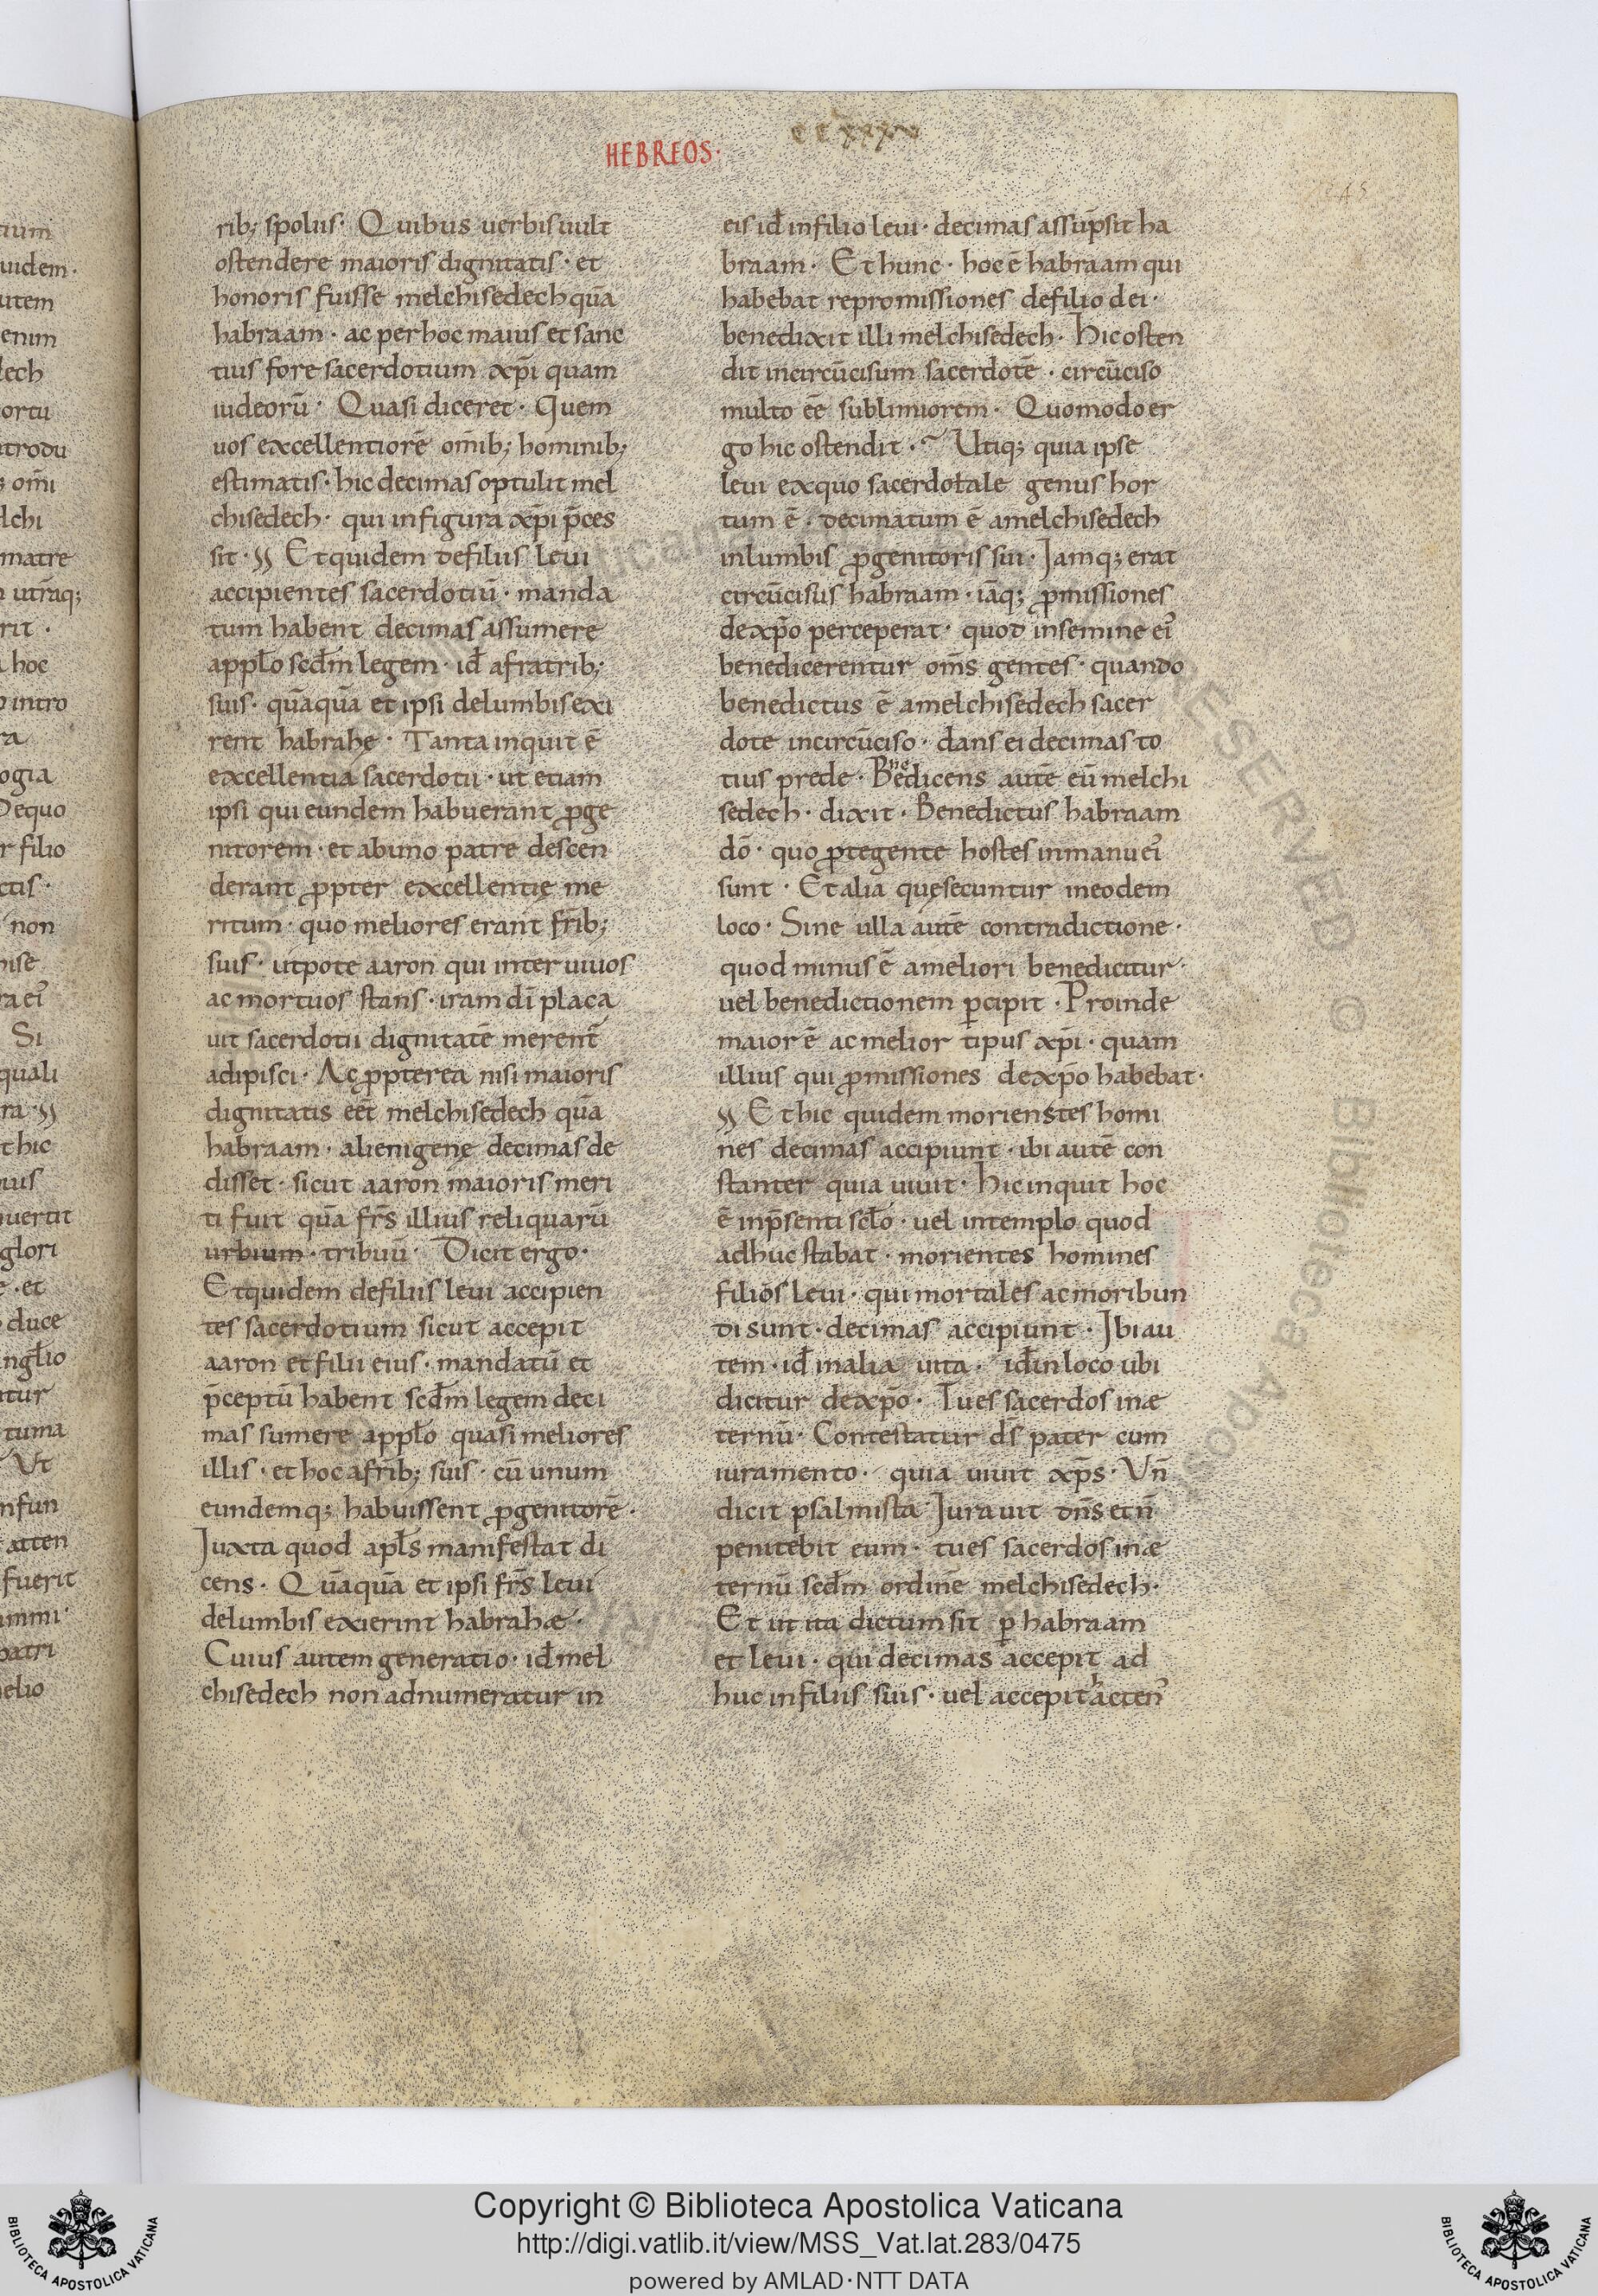 HEBREOS·
ccxxxv
rib; spoliis· Quibus uerbis uult
ostendere maioris dignitatis· et
honoris fuisse melchisedech quā
habraam· ac per hoc maius et sanc
tius fore sacerdotium xp̄i quam
iudeorū· Quasi diceret· Quem
uos excellentiorē om̄ib; hominib;
estimatis· hic decimas optulit mel
chisedech· qui in figura xp̄i p̄ces
sit· Et quidem de filiis leui
accipientes sacerdotiū· manda
tum habent decimas assumere
a pplō scdm̄ legem· id̄ a fratrib;
suis· quāquā et ipsi de lumbis exi
rent habrahę· Tanta inquit ē
excellentia sacerdotii· ut etiam
ipsi qui eundem habuerant ꝓge
nitorem· et ab uno patre descen
derant ꝓpter excellentię me
ritum· quo meliores erant fr̄ib;
suis· utpote aaron qui inter uiuos
ac mortuos stans· iram dī placa
uit sacerdotii dignitatē merent̄
adipisci· Ac ꝓpterea nisi maioris
dignitatis eēt melchisedech quā
habraam· alienigenę decimas de
disset· sicut aaron maioris meri
ti fuit quā fr̄s illius reliquarū
urbium· tribuū· Dicit ergo·
Et quidem de filiis leui accipien
tes sacerdotium sicut accepit
aaron et filii eius· mandatū et
p̄ceptū habent scdm̄ legem deci
mas sumere a pplō quasi meliores
illis· et hoc a fr̄ib; suis· cū unum
eundemq; habuissent ꝓgenitorē·
Juxta quod apl̄s manifestat di
cens· Quāquā et ipsi fr̄s leui
de lumbis exierint habrahæ·
Cuius autem generatio· id̄ mel
chisedech non adnumeratur in
eis id̄ in filio leui· decimas assūpsit ha
braam· Et hunc· hoc ē habraam qui
habebat repromissiones de filio dei·
benedixit illi melchisedech· Hic osten
dit incircūcisum sacerdotē· circūciso
multo eē sublimiorem· Quomodo er
go hic ostendit·? Utiq; quia ipse
leui ex quo sacerdotale genus hor
tum ē· decimatum ē a melchisedech
in lumbis ꝓgenitoris sui· Jamq; erat
circūcisus habraam· iāq; ꝓmissiones
de xp̄o perceperat· quod in semine ei᾽
benedicerentur om̄s gentes· quando
benedictus ē a melchisedech sacer
dote incircūciso· dans ei decimas to
tius prede· Benedicens autē eū melchi
sedech· dixit· Benedictus habraam
dō· quo ꝓtegente hostes in manu ei᾽
sunt· Et alia quę secuntur in eodem
loco· Sine ulla autē contradictione·
quod minus ē a meliori benedicitur·
uel benedictionem ꝑcipit· Proinde
maior ē ac melior tipus xp̄i· quam
illius qui ꝓmissiones de xp̄o habebat·
Et hic quidem morienstes homi
nes decimas accipiunt· ibi autē con
stanter quia uiuit· Hic inquit hoc
ē in p̄senti sclō· uel in templo quod
adhuc stabat· morientes homines
filios leui· qui mortales ac moribun
di sunt· decimas accipiunt· Ibi au
tem· id̄ in alia uita· id̄ in loco ubi
dicitur de xp̄o· Tu es sacerdos in æ
ternū· Contestatur dś pater cum
iuramento· quia uiuit xp̄s· Vn̄
dicit psalmista· Jurauit dn̄s et n̄
penitebit eum· tu es sacerdos in æ
ternū scdm̄ ordinē melchisedech·
Et ut ita dictum sit ꝑ habraam
et leui· qui decimas accepit ad
huc in filiis suis· uel accepit hacten᾽
Copyright © Biblioteca Apostolica Vaticana
http://digi.vatlib.it/view/MSS_Vat.lat.283/0475
powered by AMLAD·NTT DATA
BIBLIOTECA APOSTOLICA VATICANA
BIBLIOTECA APOSTOLICA VATICANA